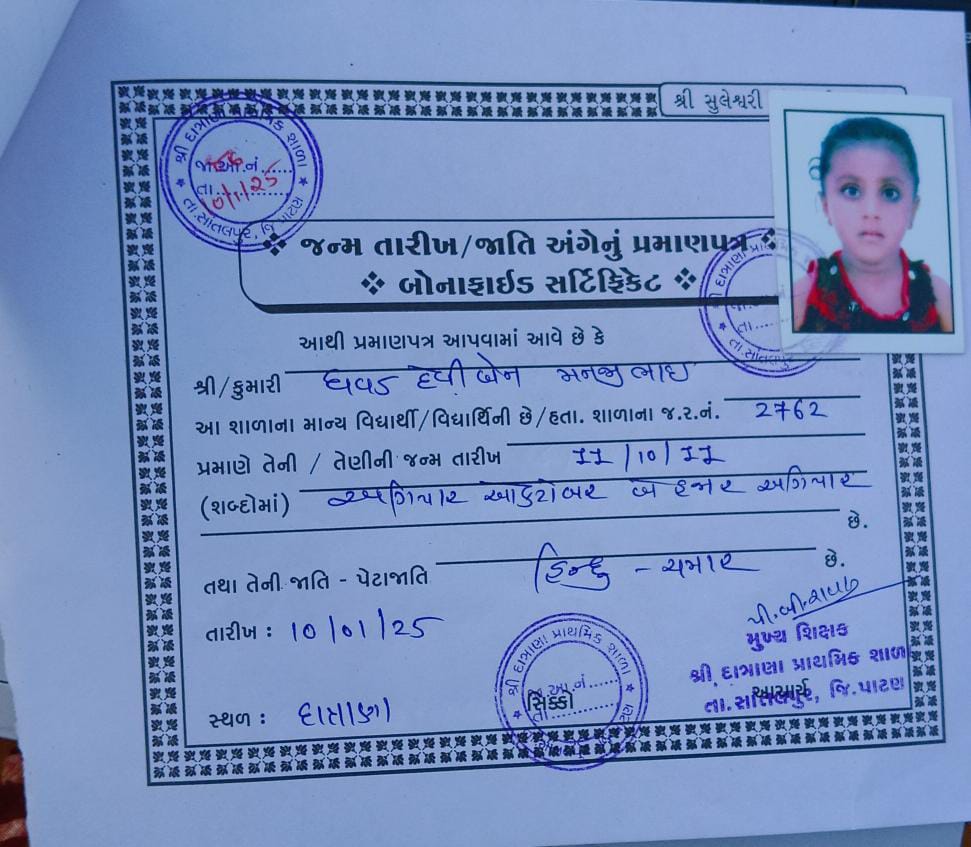 શ્રી સુલેશ્વરી
શ્રી દાત્રાણા પ્રાથમિક શાળા
જા.આ.નં......
તા. 10/1/25
તા.સાંતલપુર, જિ.પાટણ
❖ જન્મ તારીખ/જાતિ અંગેનું પ્રમાણપત્ર ❖
❖ બોનાફાઈડ સર્ટિફિકેટ ❖
આથી પ્રમાણપત્ર આપવામાં આવે છે કે
શ્રી/કુમારી ઘવડ દેવીબેન મનજીભાઇ
આ શાળાના માન્ય વિદ્યાર્થી/વિદ્યાર્થિની છે/હતા. શાળાના જ.ર.નં. 2762
પ્રમાણે તેની / તેણીની જન્મ તારીખ 11/10/11
(શબ્દોમાં) અગિયાર ઓકટોબર બે હજાર અગિયાર
છે.
તથા તેની જાતિ - પેટાજાતિ હિન્દુ - ચમાર છે.
તારીખ : 10/01/25
પી.બી.રાવળ
મુખ્ય શિક્ષક
શ્રી દાત્રાણા પ્રાથમિક શાળા
આચાર્ય
તા.સાંતલપુર, જિ.પાટણ
શ્રી દાત્રાણા પ્રાથમિક શાળા
જા.આ.નં......
સિક્કો
તા............
સ્થળ : દાત્રાણા